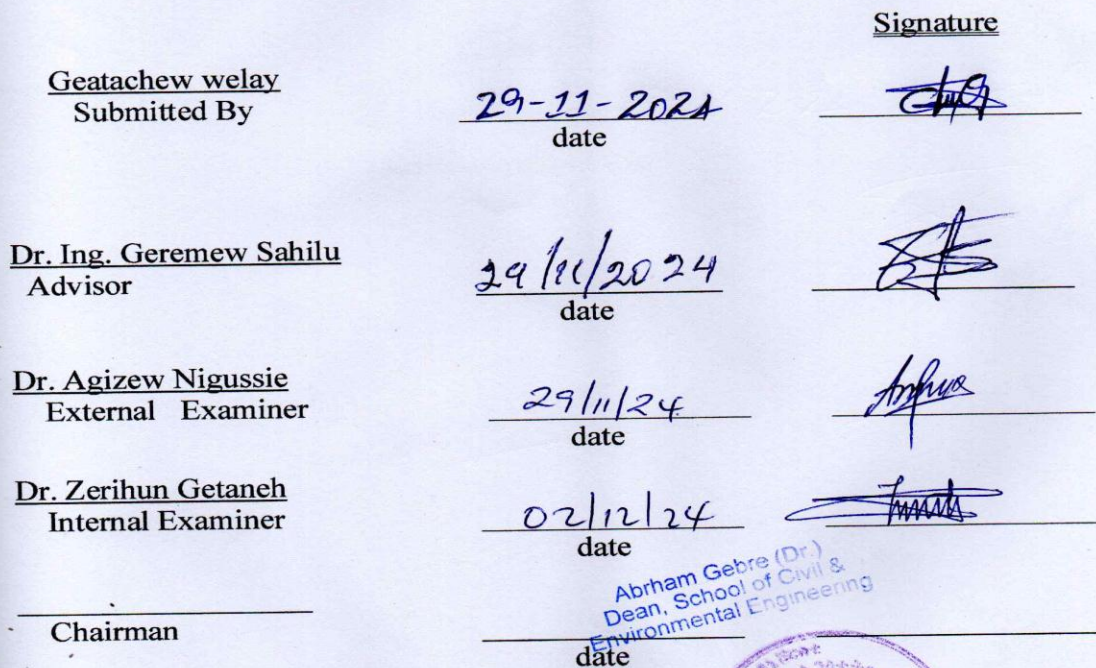 Signature
Geatachew welay
Submitted By
29-11-2024
date
Dr. Ing. Geremew Sahilu
Advisor
29/11/2024
date
Dr. Agizew Nigussie
External Examiner
29/11/24
date
Dr. Zerihun Getaneh
Internal Examiner
02/12/24
date
Abrham Gebre (Dr.)
Dean, School of Civil &
Environmental Engineering
Chairman
date